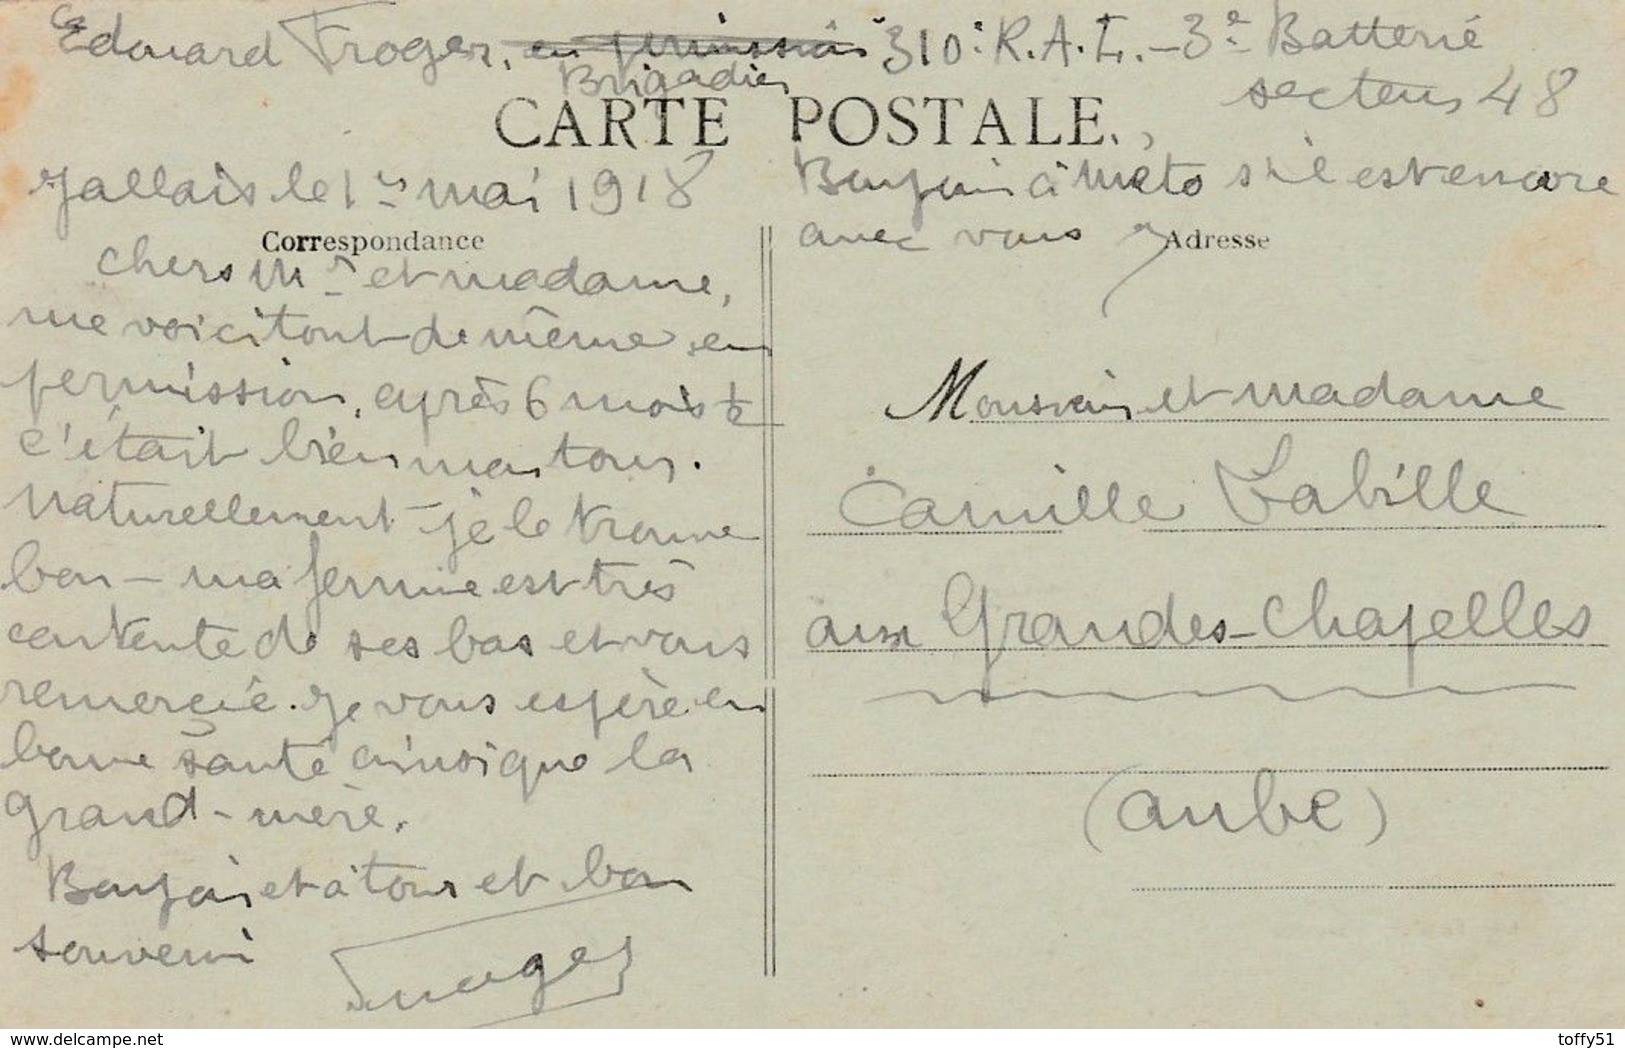 Edouard Froger, en permission 310e R.A.L. - 3e Batterie
Brigadier
secteur 48
CARTE POSTALE
Jallais le 1er mai 1918
Bonjour à Meto s'il est encore
avec vous
Correspondance
Adresse
chers Mr et madame,
me voici tout de même en
permission, après 6 mois ½
c'était bien mon tour.
naturellement je le trouve
bon - ma femme est très
contente de ses bas et vous
remercie. Je vous espère en
bonne santé ainsi que la
grand-mère.
Bonjour et à tous et bon
souvenir
Froger
Monsieur et madame
Camille Labille
aux Grandes-Chapelles
(aube)
toffy51